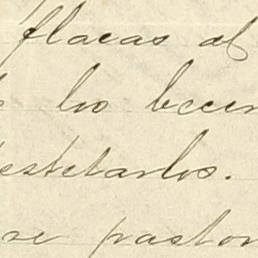 flacas al
los becer
estetarlos.
se pastor